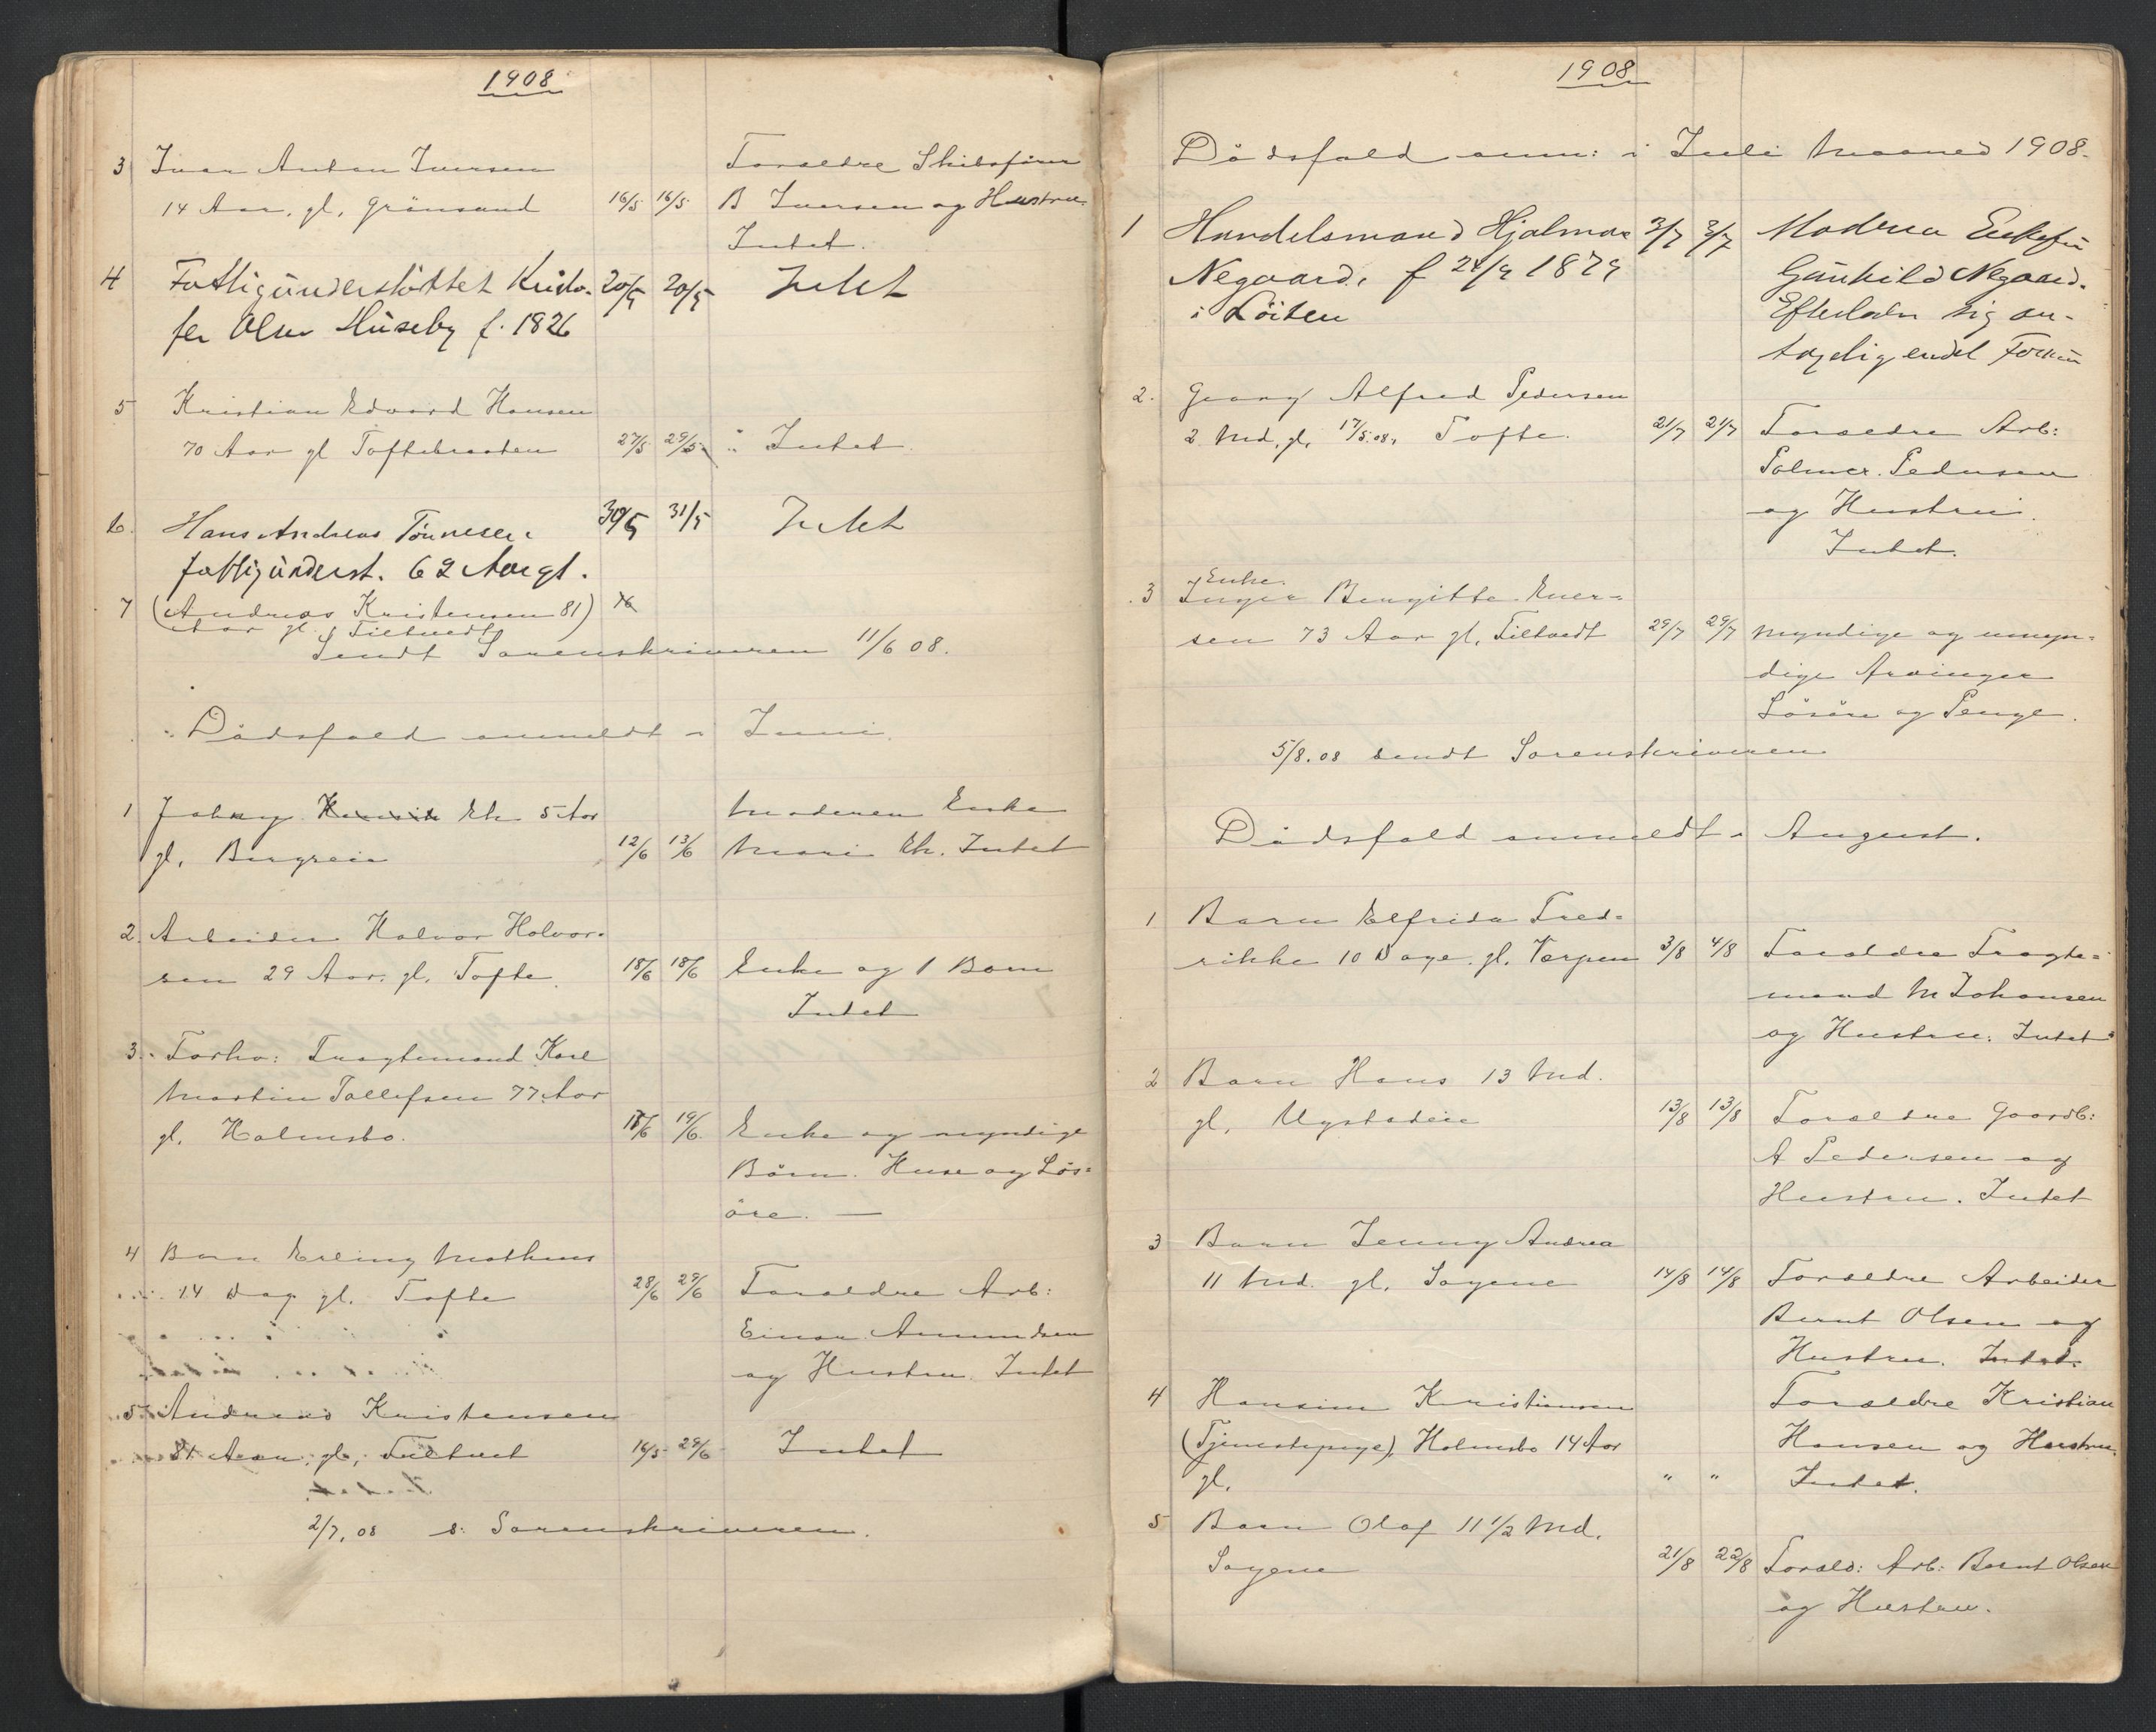 1908
3 Ivar Anton Iversen Forældre Skibsfører
14 Aar. gl. Grönsand 16/5 16/5 B Iversen og Hustru
Intet.
4 Fattigünderstöttet Kristo- 20/5 20/5 Intet
fer Olsen Hüseby f. 1826
5 Kristian Edvard Hansen
70 Aar gl Toftebraaten 27/5 29/5 Intet
6. Hans Andreas Tönnesen 30/5 31/5 Intet
fattigünderst. 62 Aar gl.
7 (Andreas Kristensen 81)
Aar gl. Filtvedt
Sendt Sorenskriveren 11/6 08.
Dödsfald anmeldt i Juni.
1 Johny Eh 5 Aar Moderen Enke
gl. Bergreie 12/6 13/6 Mari Eh. Intet
2. Arbeider Halvor Halvor-
sen 29 Aar. gl. Tofte. 18/6 18/6 Enke og 1 Barn
Intet
3. Forhv: Fragtemand Karl
Martin Tollefsen 77 Aar
gl. Holmsbo. 18/6 19/6 Enke og myndige
Börn. Huse og Lös-
öre. —
4 Barn Erling Matheus
14 Dag gl. Tofte 28/6 29/6 Forældre Arb:
Einar Amundsen
og Hustru. Intet
5 Andreas Kristensen
81 Aar gl. Filtvet 16/5 29/6 Intet
2/7. 08 s: Sorenskriveren.
1908
Dödsfald anm: i Juli Maaned 1908.
1 Handelsmand Hjalmar 3/7 3/7 Moderen Enkefrü
Negaard. f 24/9 1879 Günhild Negaard.
i Löiten Efterlader sig an-
tagelig endel Formüe
2. Georg Alfred Pedersen
2 Md. gl. 17/5.08. Tofte. 21/7 21/7 Forældre Arb:
Palmer. Pedersen
og Hustru.
Intet.
Enke.
3 Inger Bergitte Iver-
sen 73 Aar gl. Filtvedt 29/7 29/7 myndige og umyn-
dige Arvinger
Lösöre og Penge.
5/8.08 sendt Sorenskriveren
Dödsfald anmeldt i August.
1 Barn Elfrida Fred-
rikke 10 Dage. gl. Værpen 3/8 4/8 Forældre Fragte-
mand M Johansen
og Hustru. Intet
2 Barn Hans 13 Md.
gl. 13/8 13/8 Forældre Gaardb:
A Pedersen og
Hustru. Intet
3 Barn Jenny Andrea
11 Md. gl. Sagene 14/8 14/8 Forældre Arbeider
Bernt Olsen og
Hustru. Intet.
4 Hansine Kristiansen Forældre Kristian
(Tjenestepige) Holmsbo 14 Aar Hansen og Hustru.
gl. " " Intet.
5 Barn Olaf 11 1/2 Md.
Sagene 21/8 22/8 Foræld: Arb: Bernt Olsen
og Hustru.